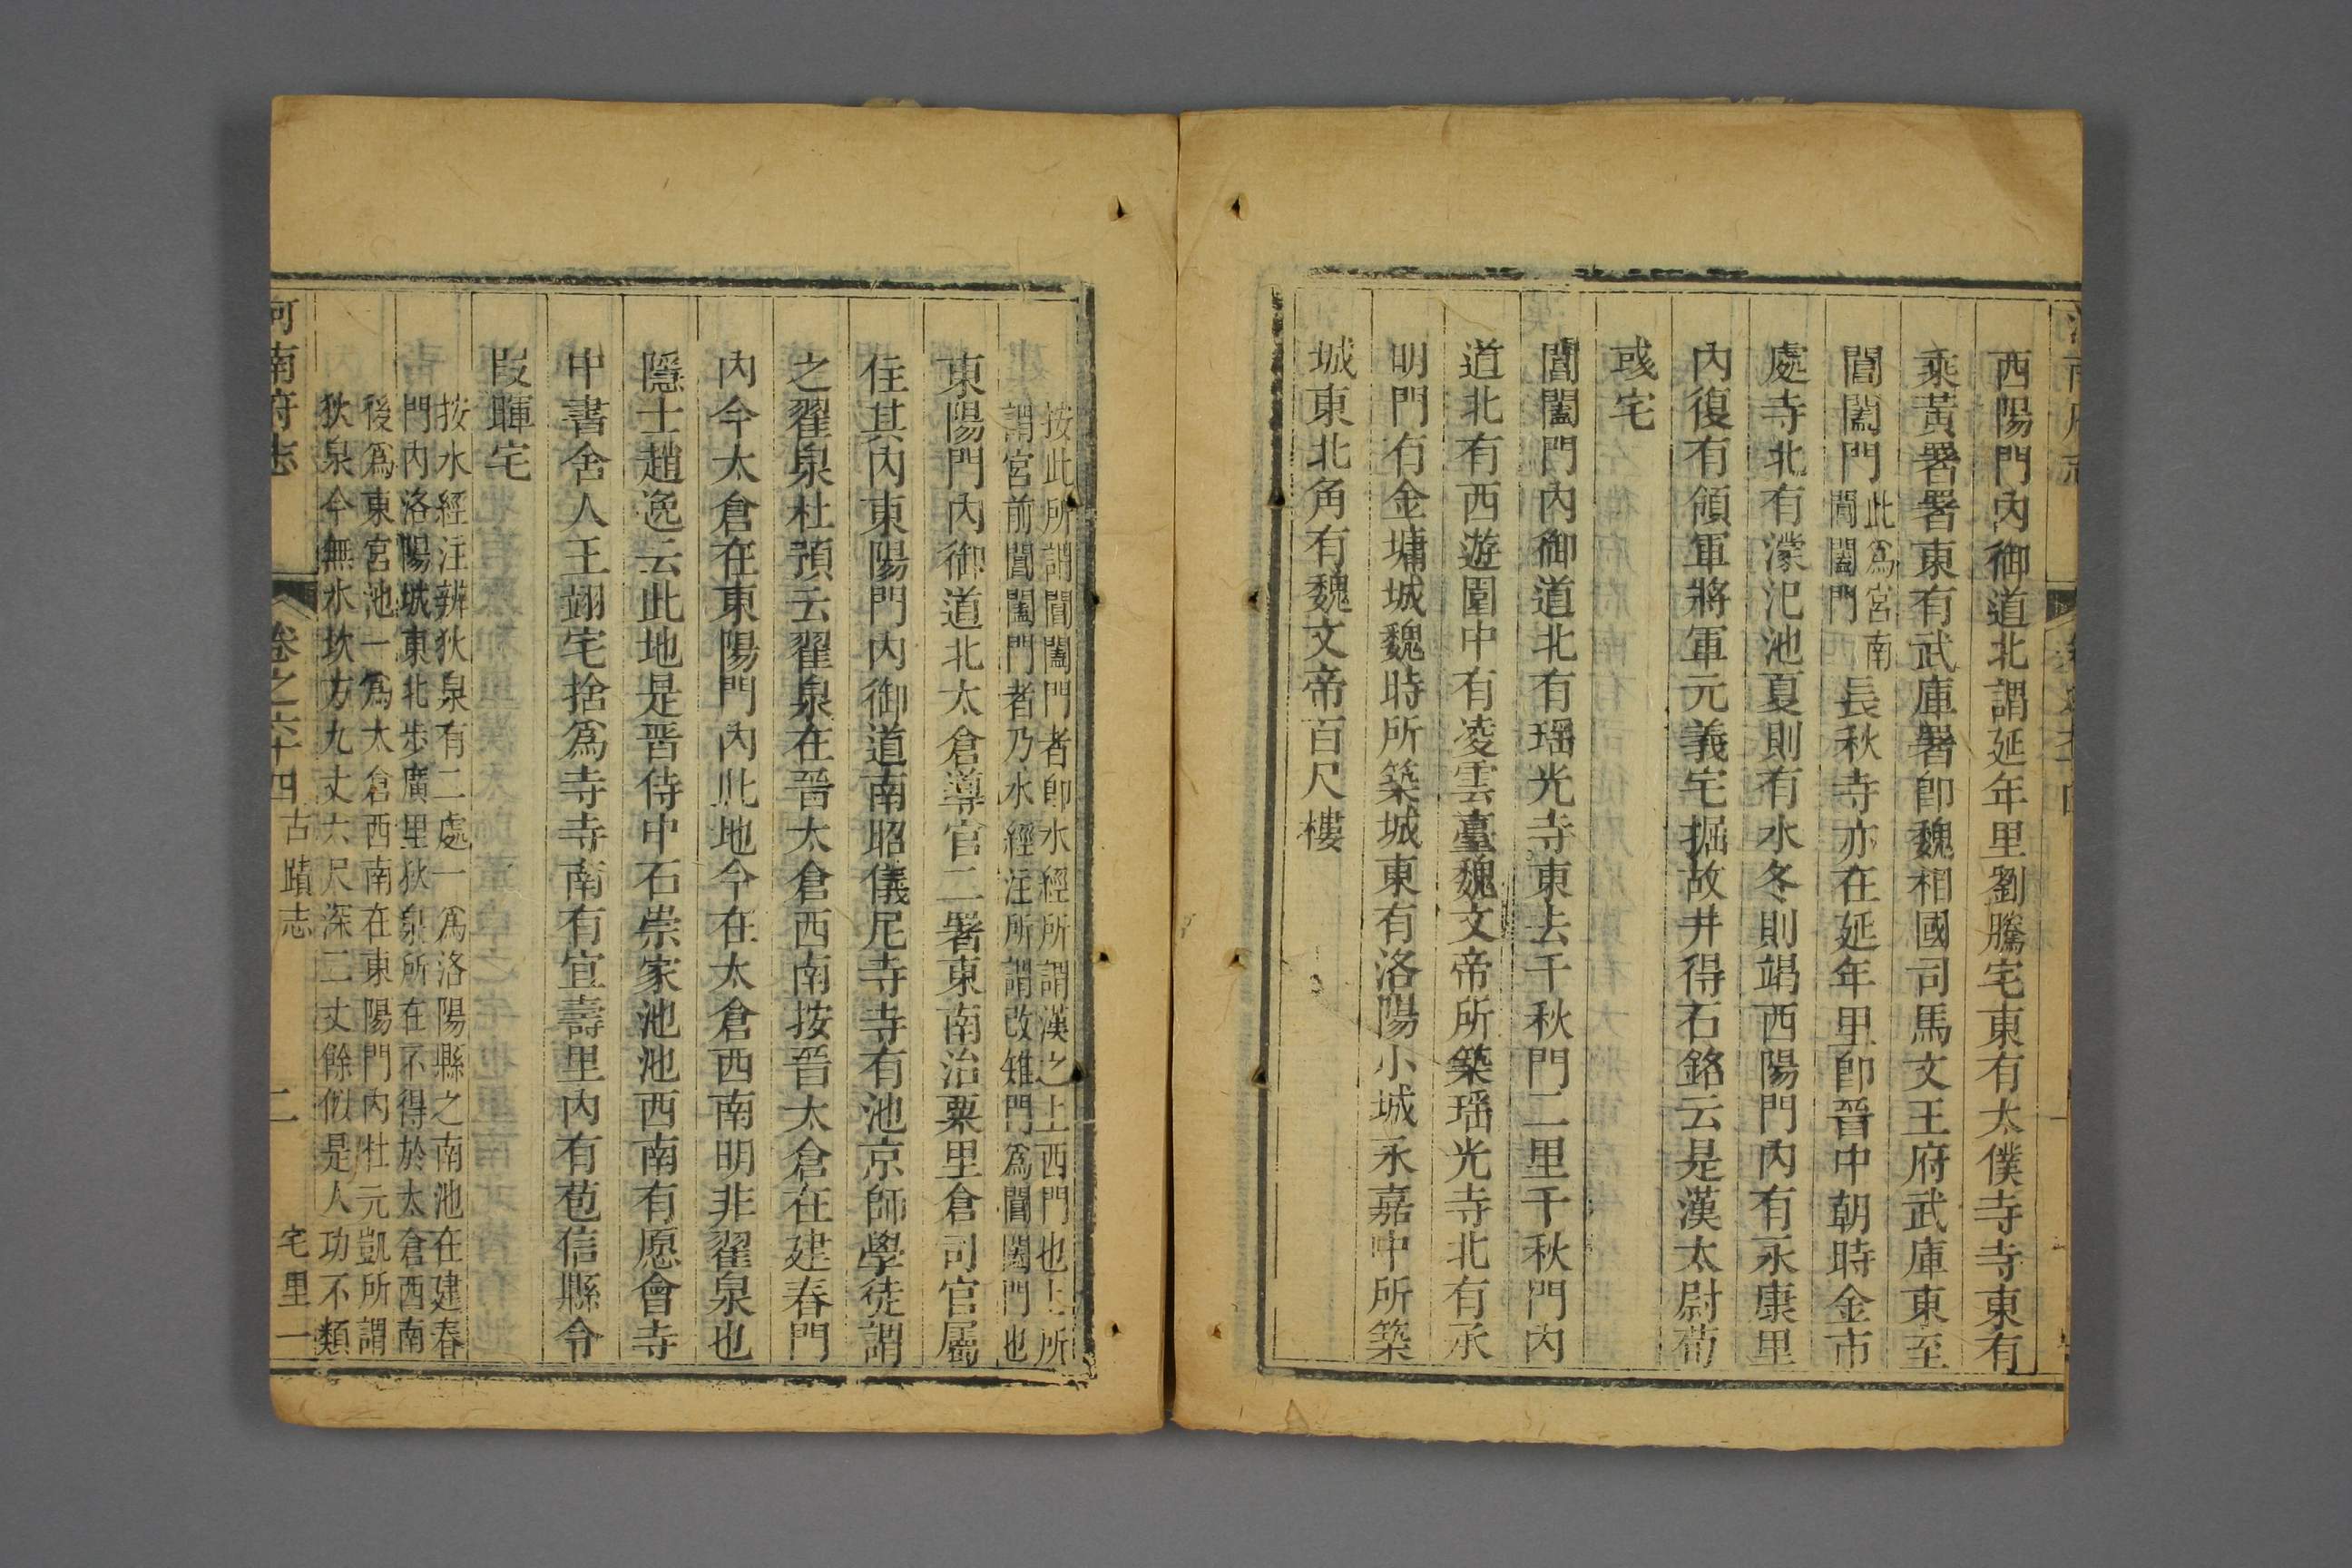 西陽門內御道北謂延年里劉騰宅東有太僕寺寺東有
乘黃署署東有武庫署卽魏相國司馬文王府武庫東至
閶闔門此爲宮南閶闔門長秋寺亦在延年里卽晉中朝時金市
處寺北有濛汜池夏則有水冬則竭西陽門內有永康里
內復有領軍將軍元義宅掘故井得石銘云是漢太尉荀
彧宅
閶闔門內御道北有瑶光寺東去千秋門二里千秋門內
道北有西遊園中有凌雲臺魏文帝所築瑶光寺北有承
明門有金墉城魏時所築城東有洛陽小城永嘉中所築
城東北角有魏文帝百尺樓
按此所謂閶闔門者卽水經所謂漢之上西門也上所
謂宮前閶闔門者乃水經注所謂改雉門爲閶闔門也
東陽門內御道北太倉導官二署東南治粟里倉司官屬
住其內東陽門內御道南昭儀尼寺寺有池京師學徒謂
之翟泉杜預云翟泉在晉太倉西南按晉太倉在建春門
內今太倉在東陽門內此地今在太倉西南明非翟泉也
隱士趙逸云此地是晋侍中石崇家池池西南有愿會寺
中書舍人王翊宅捨爲寺寺南有宜壽里內有苞信縣令
段暉宅
按水經注辨狄泉有二處一爲洛陽縣之南池在建春
門內洛陽城東北步廣里狄泉所在不得於太倉西南
後爲東宮池一爲大倉西南在東陽門內杜元凱所謂
狄泉今無水坎方九丈六尺深二丈餘似是人功不類
河南府志
卷之六十四
古蹟志
二
宅里一